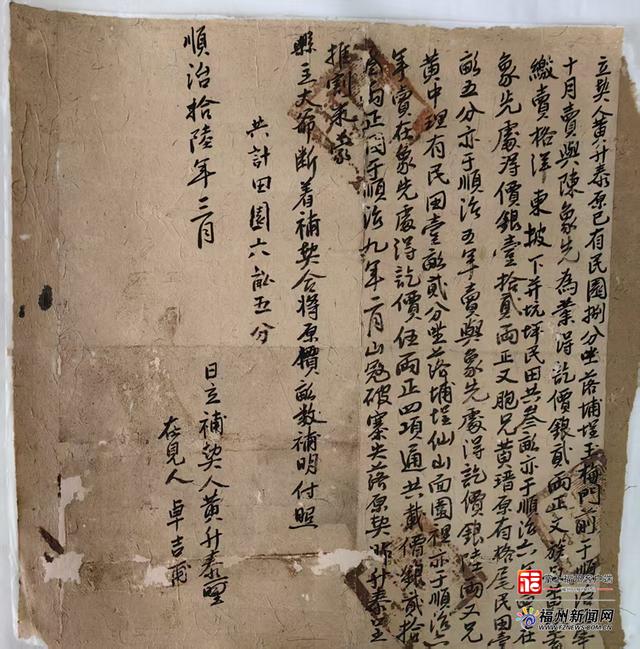 立契人黃升泰原已有民園捌分坐落埔埕王梅門前于順治年
十月賣與陳象先為業得訖價銀貳兩正又族
繳賣格洋東坡下并坑坪民田共叁畝亦于順治六年 在
象先處得價銀壹拾貳兩正又胞兄黃瑨原有格 民田壹
畝五分亦于順治五年賣與象先處得訖價銀陸兩又兄
黃中理有民田壹畝貳分坐落埔埕仙山面園裡亦于順治六
年賣在象先處得訖價伍兩正四項通共載價銀貳拾
伍兩正因于順治九年二月山寇破寨失落原契 升泰呈
推割 蒙
縣主大爺断着補契合將原價畝数補明付照
共計田園六畝五分
順治拾陸年二月
日立補契人黃升泰
在見人卓吉甫
掌上福州客户端
福州新闻网
WWW.FZNEWS.COM.CN